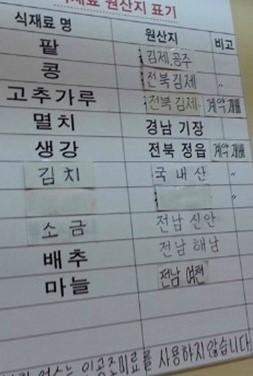 재료 원산지 표기
식재료 명 원산지 비고
팥 김제, 공주
콩 전북 김제 〃
고추가루 전북 김제 계약 재배
멸치 경남 기장
생강 전북 정읍 계약 재배
김치 국내산 〃
〃
소금 전남 신안
배추 전남 해남
마늘 전남
업소는 인공조미료를 사용하지않습니다